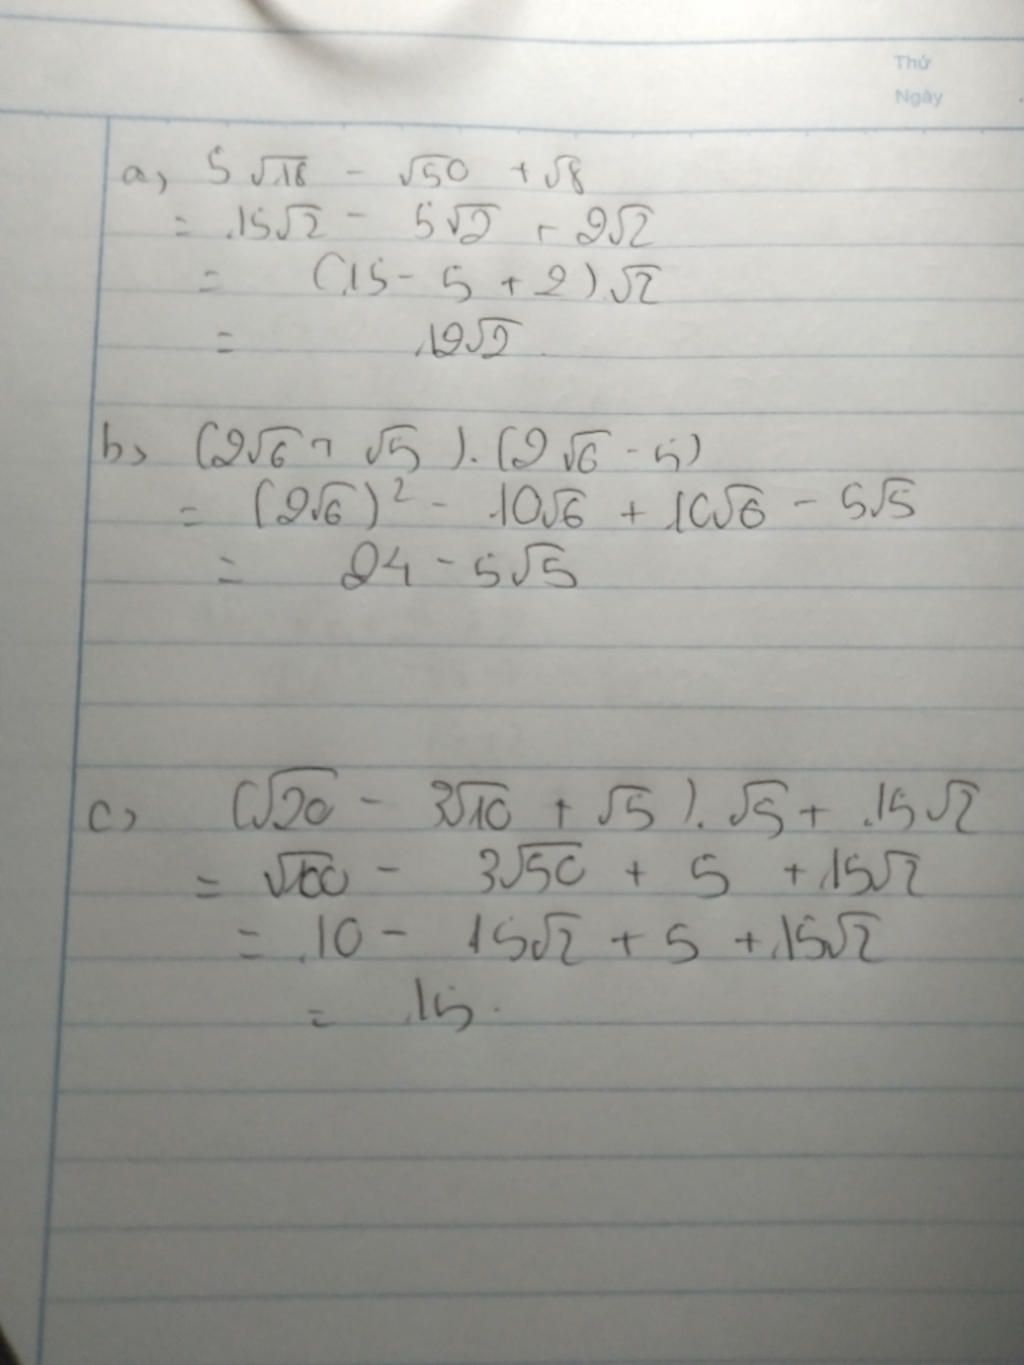 Thứ
Ngày
a, 5√18 - √50 + √8
= 15√2 - 5√2 + 2√2
= (15 - 5 + 2).√2
= 12√2
b, (2√6 + √5).(2√6 - 5)
= (2√6)² - 10√6 + 10√6 - 5√5
= 24 - 5√5
c, (√20 - 3√10 + √5).√5 + 15√2
= √100 - 3√50 + 5 + 15√2
= 10 - 15√2 + 5 + 15√2
= 15.